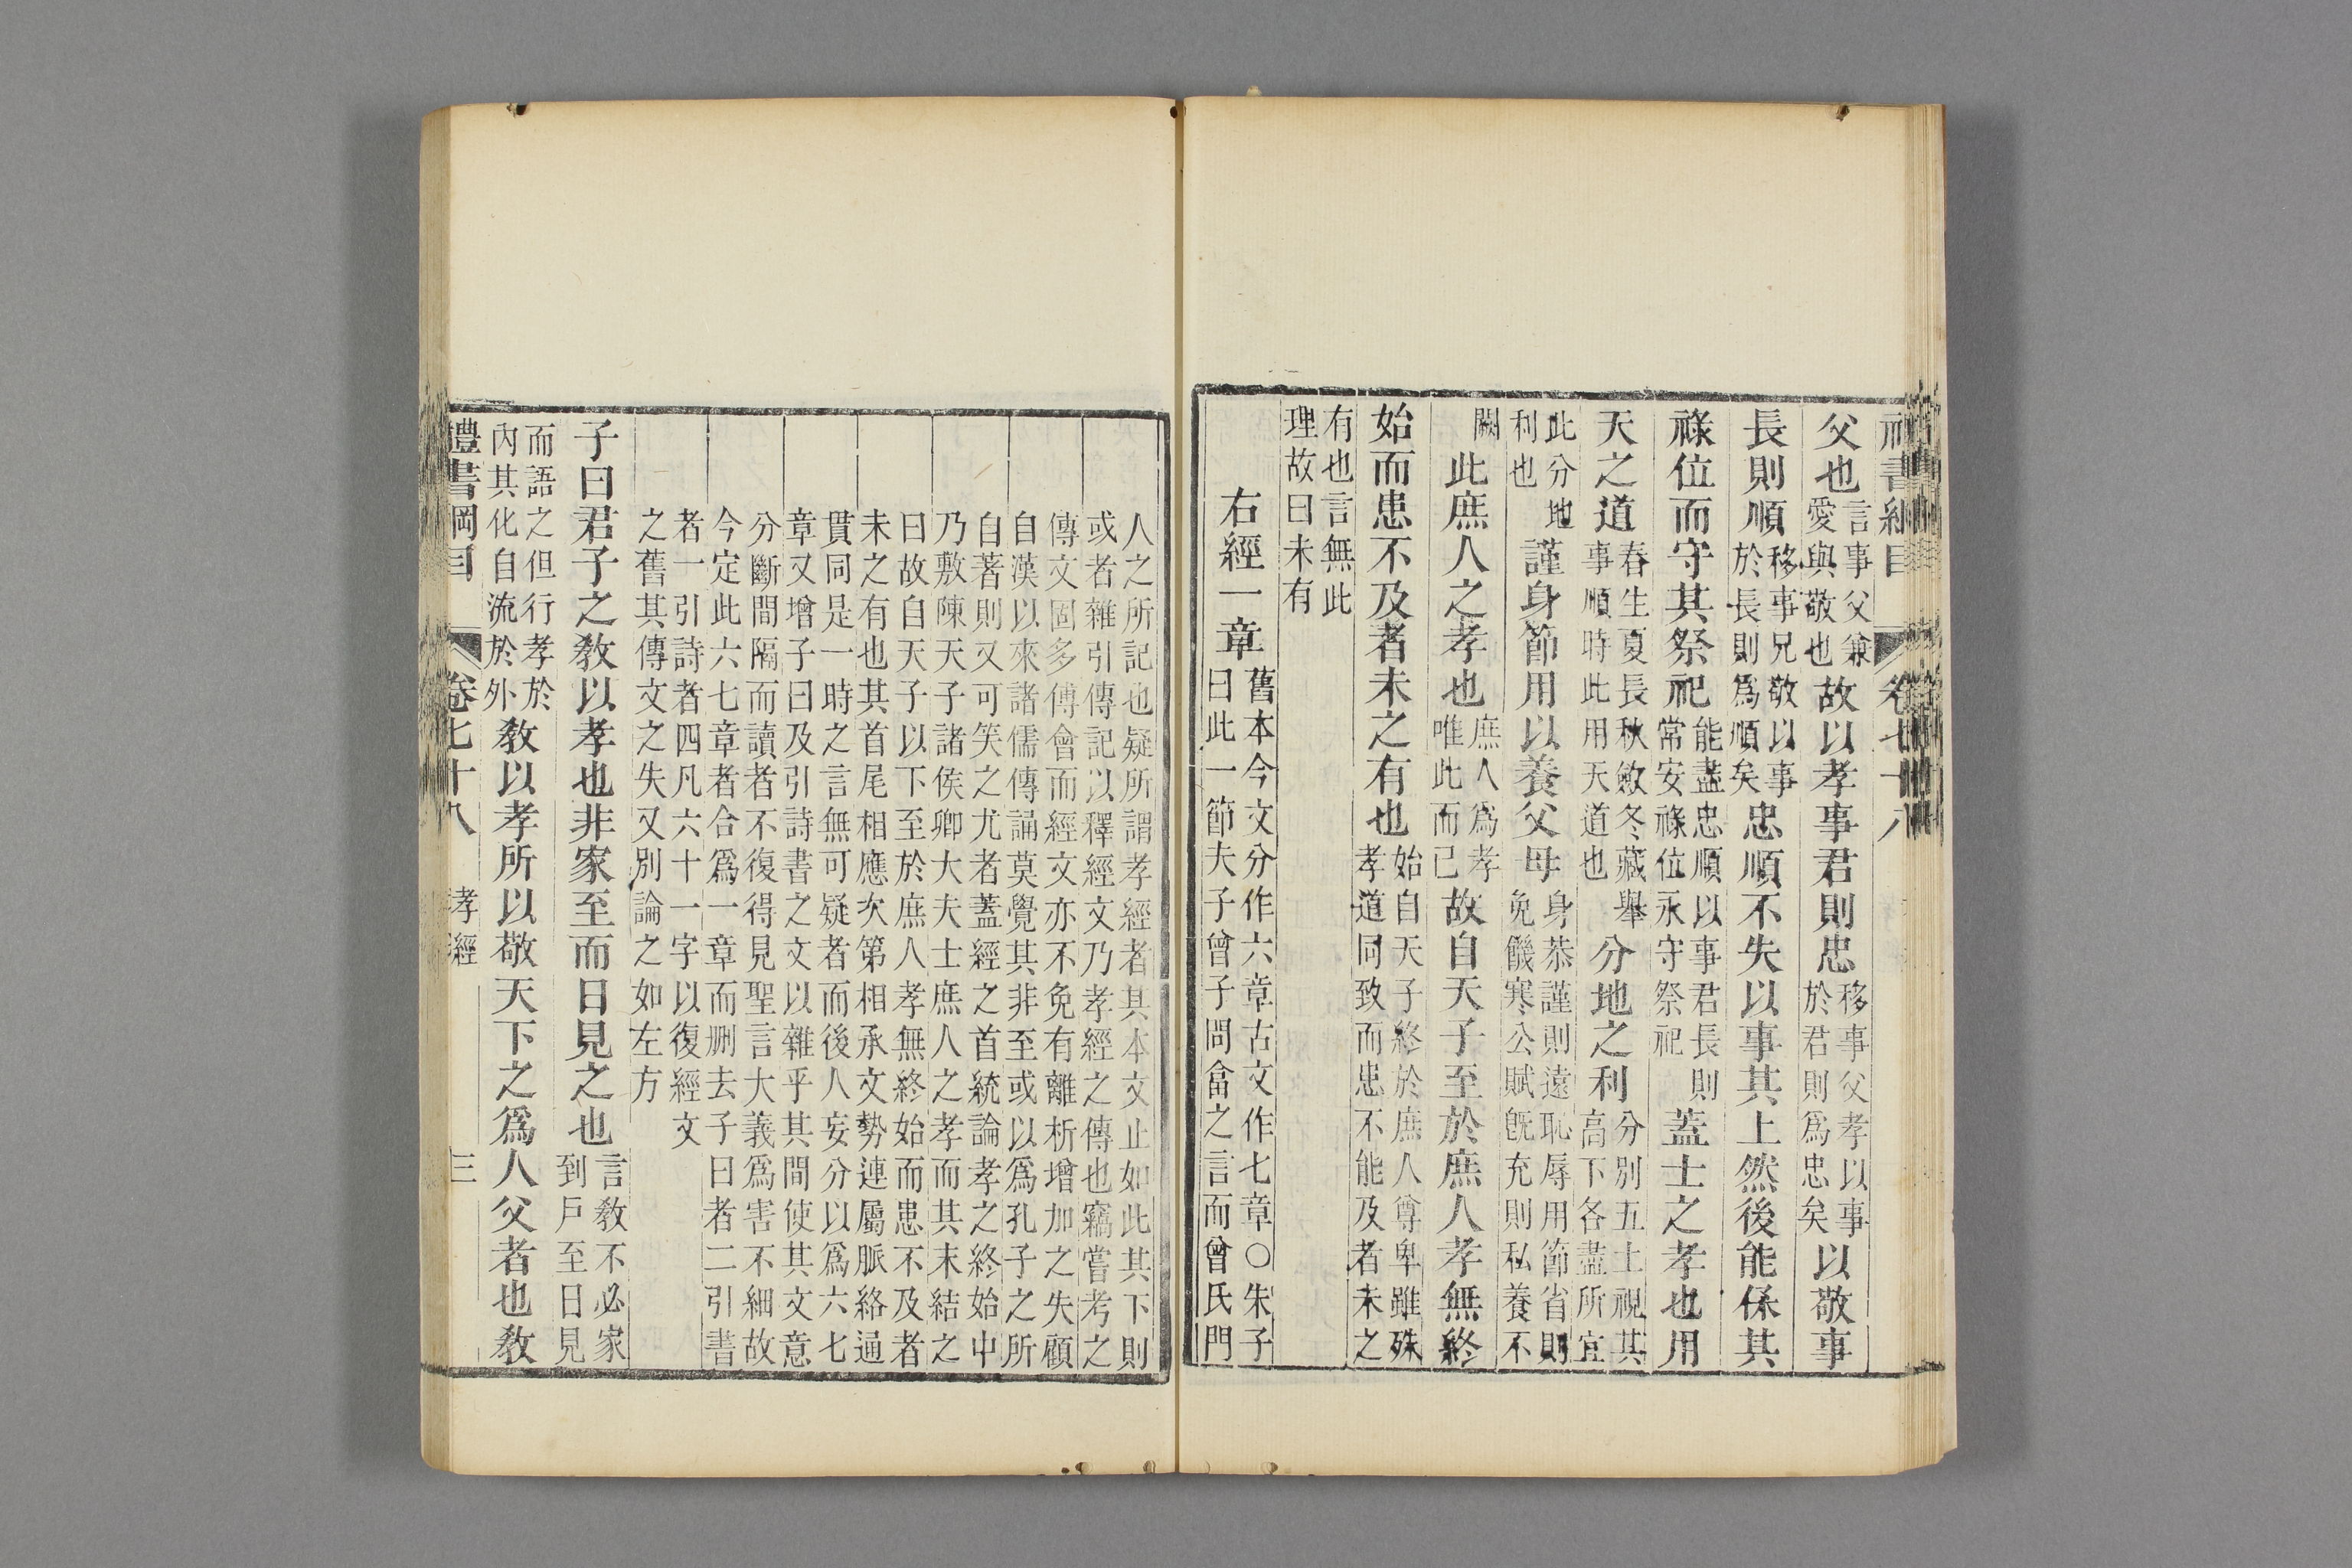 父也言事父兼愛與敬也故以孝事君則忠移事父孝以事於君則爲忠矣以敬事
長則順移事兄敬以事於長則爲順矣忠順不失以事其上然後能保其
祿位而守其祭祀能盡忠順以事君長則常安祿位永守祭祀蓋士之孝也用
天之道春生夏長秋斂冬藏舉事順時此用天道也分地之利分別五土視其高下各盡所宜
此分地利也謹身節用以養父母身恭謹則遠恥辱用節省則免饑寒公賦旣充則私養不
闕此庶人之孝也庶人爲孝唯此而已故自天子至於庶人孝無終
始而患不及者未之有也始自天子終於庶人尊卑雖殊孝道同致而患不能及者未之
有也言無此理故曰未有
右經一章舊本今文分作六章古文作七章○朱子曰此一節夫子曾子問畣之言而曾氏門
人之所記也疑所謂孝經者其本文止如此其下則
或者雜引傳記以釋經文乃孝經之傳也竊嘗考之
傳文固多傅會而經文亦不免有離析增加之失顧
自漢以來諸儒傳誦莫覺其非至或以爲孔子之所
自著則又可笑之尤者蓋經之首統論孝之終始中
乃敷陳天子諸侯卿大夫士庶人之孝而其末結之
曰故自天子以下至於庶人孝無終始而患不及者
未之有也其首尾相應次第相承文勢連屬脈絡通
貫同是一時之言無可疑者而後人妄分以爲六七
章又增子曰及引詩書之文以雜乎其間使其文意
分斷間隔而讀者不復得見聖言大義爲害不細故
今定此六七章者合爲一章而刪去子曰者二引書
者一引詩者四凡六十一字以復經文
之舊其傳文之失又別論之如左方
子曰君子之教以孝也非家至而日見之也言教不必家到戶至日見
而語之但行孝於內其化自流於外教以孝所以敬天下之爲人父者也教
禮書綱目 卷七十八 孝經 三